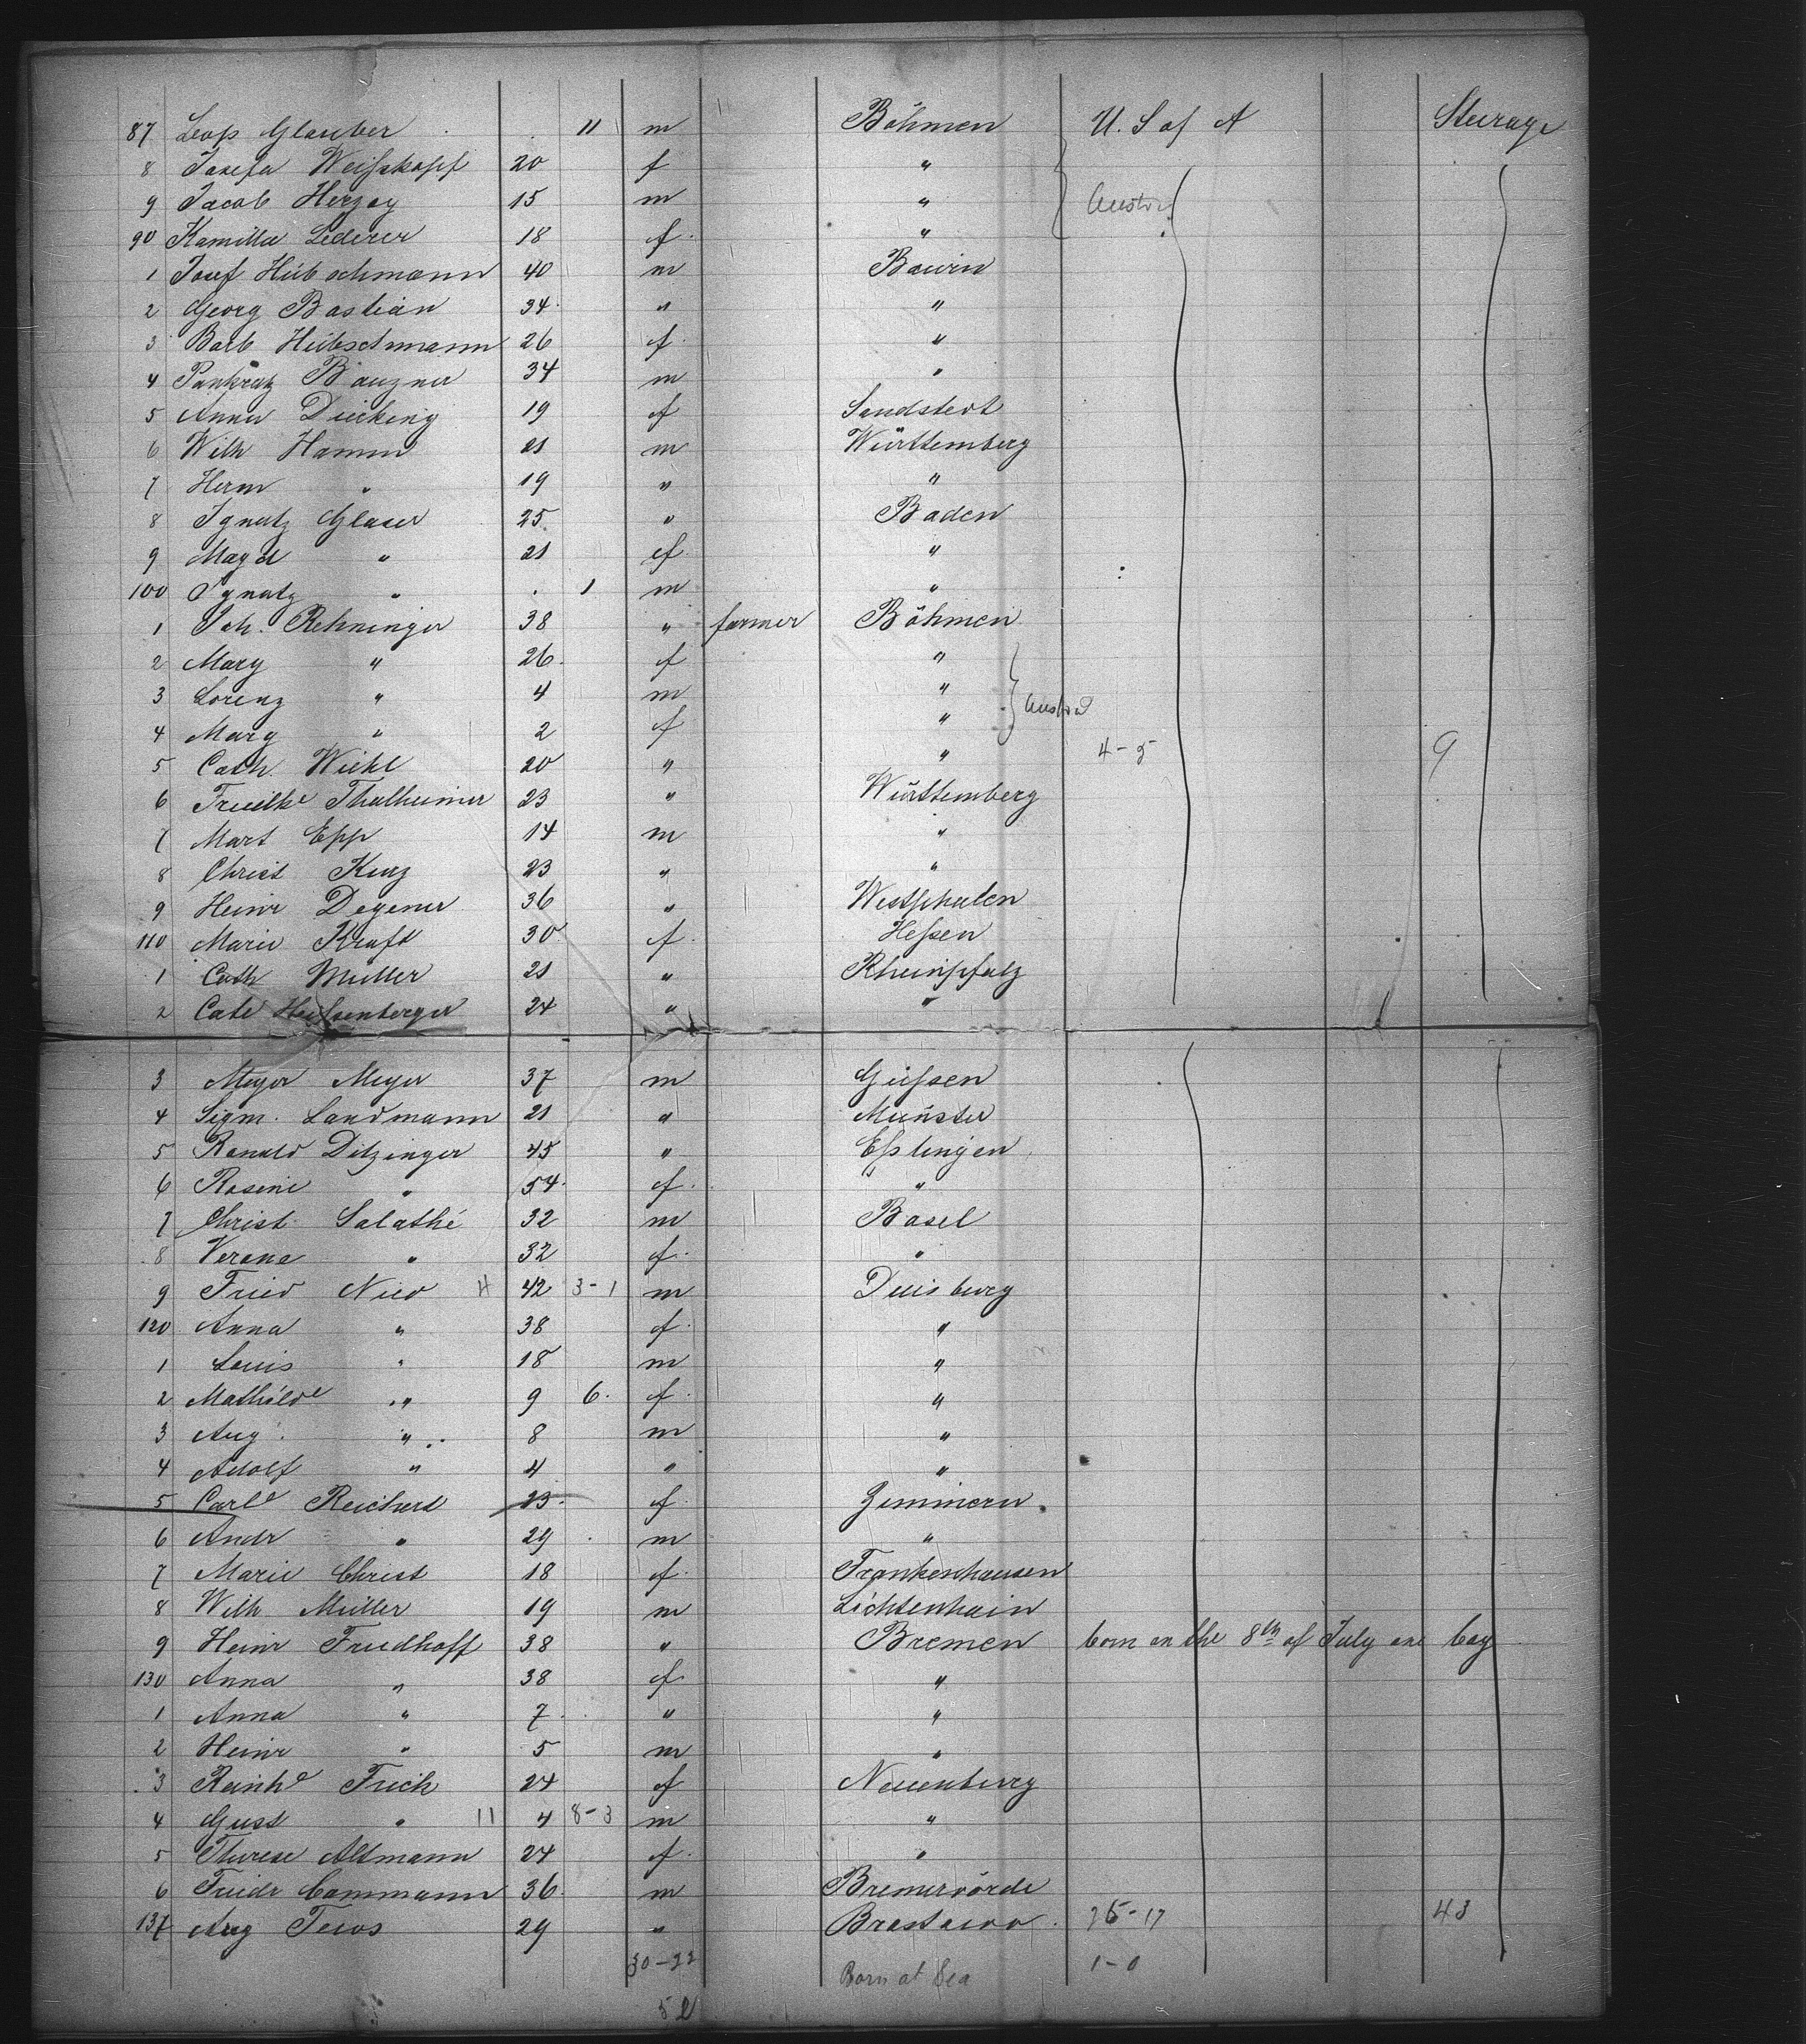 87 Leop Glauber 11 m Böhmen U. S of A Steerage
8 Josefa Weifskopf 20 f "
9 Jacob Herzog 15 m " Austria
90 Kamilla Lederer 18 f "
1 Josef Hübschmann 40 m Baiern
2 Georg Bastian 34 " "
3 Barb Hübschmann 26 f "
4 Pankratz Bauzner 34 m "
5 Anna Diecking 19 f Sandstedt
6 Wilh Hamm 21 m Württemberg
7 Herm " 19 " "
8 Ignatz Glaser 25 " Baden
9 Magd " 21 f "
100 Ignatz " 1 m "
1 Joh. Rehninger 38 " farmer Böhmen
2 Mary " 26 f "
3 Lorenz " 4 m " Austria
4 Mary " 2 f "
5 Cath. Wiehl 20 " " 4-5 9
6 Friedke Thalheimer 23 " Württemberg
7 Mart Epp 14 m "
8 Christ Kurz 23 " "
9 Heinr Degener 36 " Westphalen
110 Marie Kraft 30 f Hefsen
1 Cath Müller 21 " Rheinpfalz
2 Cate Heifsenberger 24 " "
3 Meyer Meyer 37 m Giefsen
4 Sigm. Landmann 21 " Münster
5 Ronald Ditzinger 45 " Efslingen
6 Rosine " 54 f "
7 Christ. Salathé 32 m Basel
8 Verena " 32 f "
9 Fried Nied 4 42 3-1 m Duisburg
120 Anna " 38 f "
1 Louis " 18 m "
2 Mathilde " 9 6 f "
3 Aug. " 8 m "
4 Adolf " 4 " "
5 Carle Reichert 23 f Zimmern
6 Andr " 29 m "
7 Marie Christ 18 f Frankenhausen
8 Wilh Müller 19 m Lichtenhain
9 Heinr Friedhoff 38 " Bremen born on the 8th of July one boy
130 Anna " 38 f "
1 Anna " 7 " "
2 Heinr " 5 m "
3 Reinhe Frich 24 f Neuenburg
4 Gust " 11 4 8-3 m "
5 Therese Altmann 24 f "
6 Friedr Cammann 36 m Bremervörde
137 Aug Tews 29 " 26-17 43
30-22 Born at Sea 1-0
52